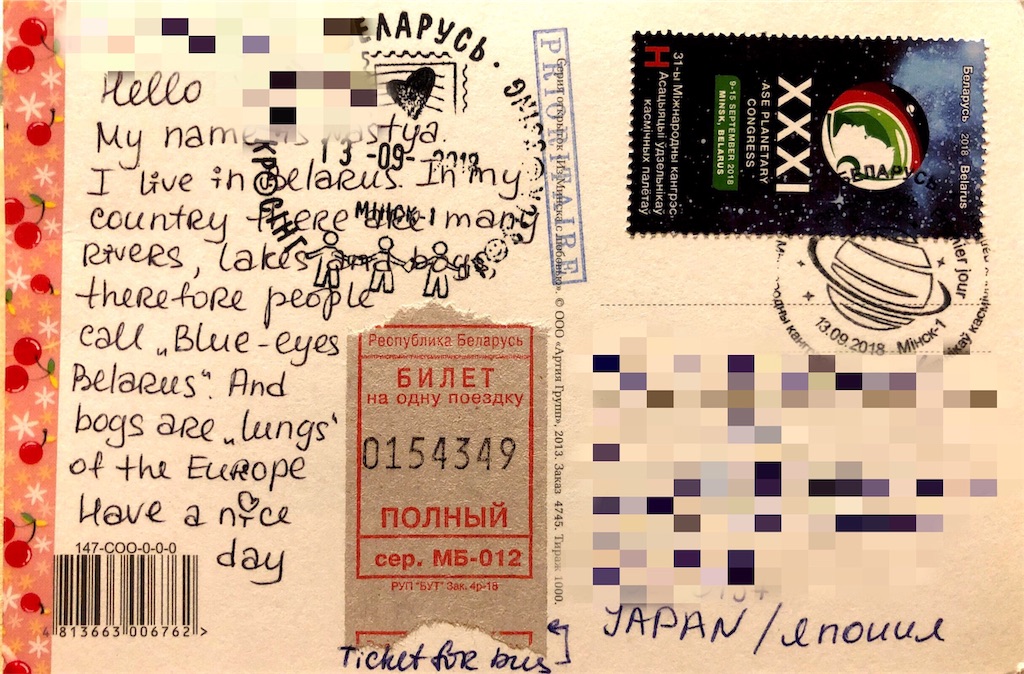 Hello
My name is Nastya.
I live in Belarus. In my
country there are many
rivers, lakes and bogs,
therefore people
call „Blue-eyes
Belarus“. And
bogs are „lungs“
of the Europe
Have a nice
day
147-COO-0-0-0
4 813663 006762 >
БЕЛАРУСЬ.
13-09-2018
МІНСК-1
КРОСІНГ
Республика Беларусь
БИЛЕТ
на одну поездку
0154349
ПОЛНЫЙ
сер. МБ-012
РУП "БУТ" Зак. 4р-18
Ticket for bus
PRIORITAIRE
© ООО «Артия Групп», 2013. Заказ 4745. Тираж 1000.
Беларусь 2018 Belarus
XXXI
ASE PLANETARY
CONGRESS
9-15 SEPTEMBER 2018
MINSK, BELARUS
31-ы Міжнародны кангрэс
Асацыяцыі ўдзельнікаў
касмічных палётаў
H
БЕЛАРУСЬ
13.09.2018 Мінск-1
JAPAN / Япония